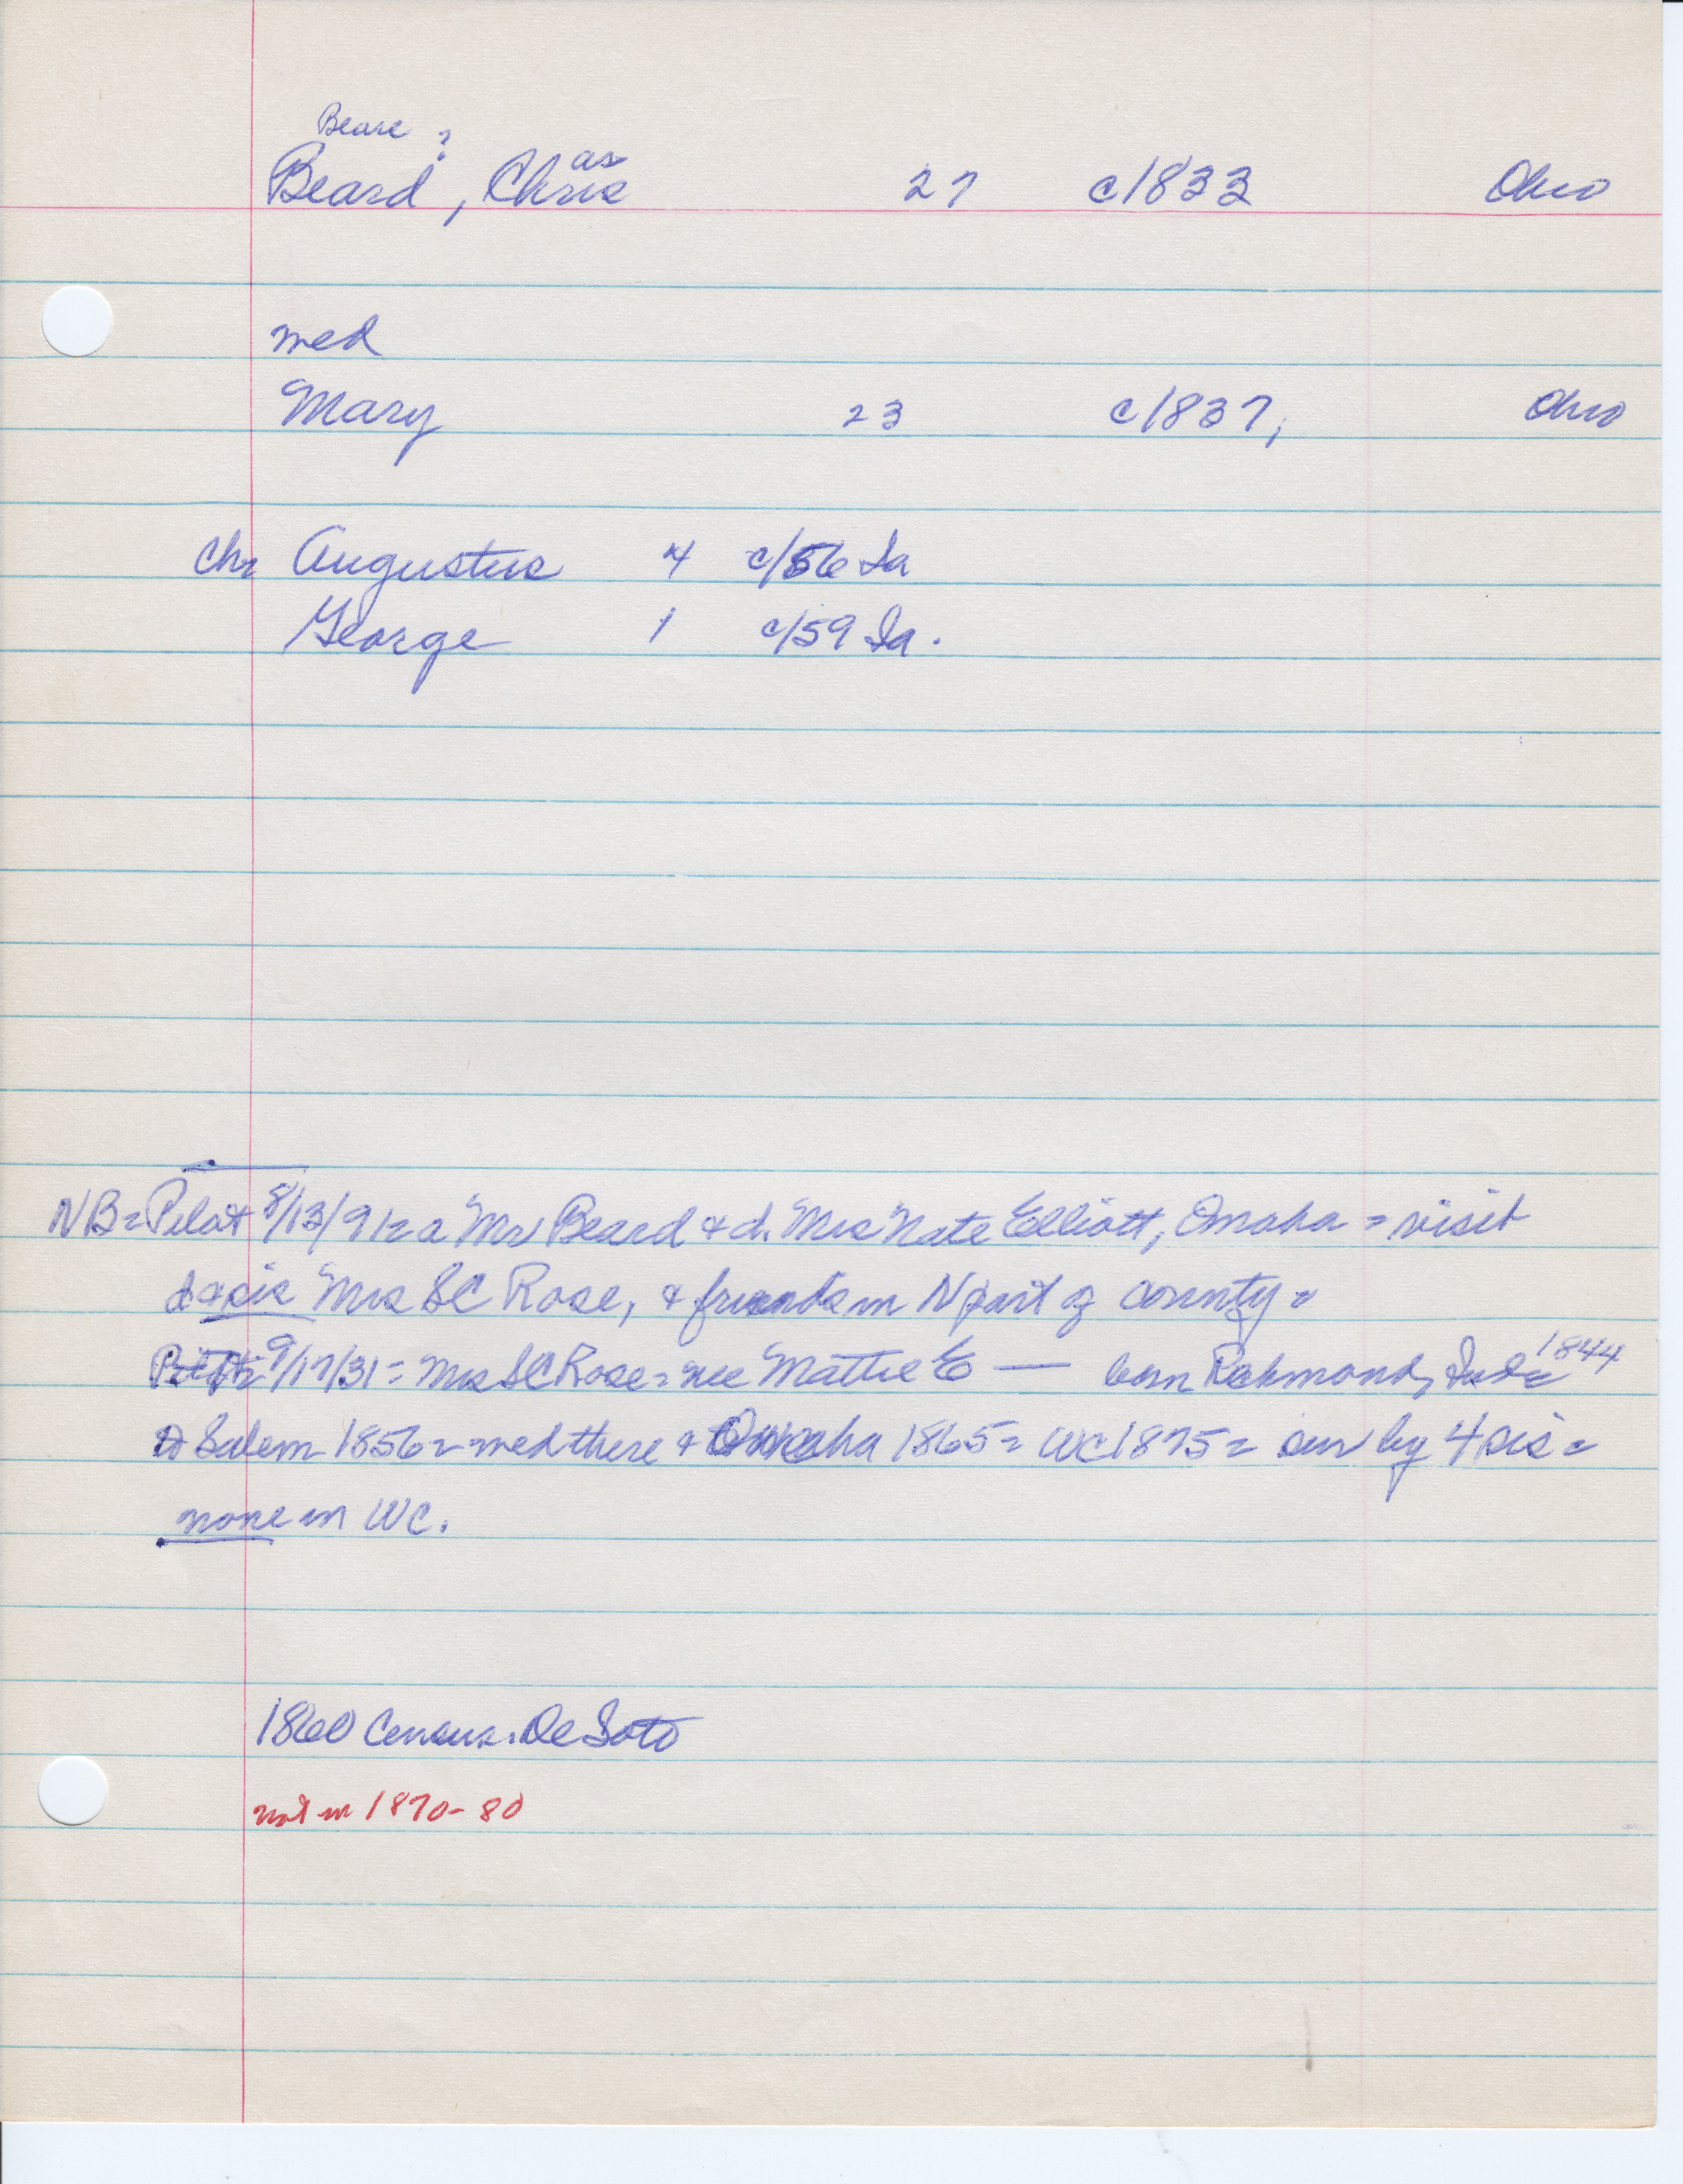 Beare ?
Beard, Chris as 27 c1833 Ohio
med
Mary 23 c1837, Ohio
Chr Augustus 4 c/56 Ia
George 1 c/59 Ia.
NB = Pilot 8/13/91 = a Mr Beard & d. Mrs Nate Elliott, Omaha = visit
d & sis Mrs SC Rose, & friends in N part of county =
9/17/31 = Mrs SC Rose = nee Mattie E — born Richmond, Ind = 1844
to Salem 1856 = med there & Omaha 1865 = WC 1875 = sur by 4 sis =
none in WC.
1860 Census. De Soto
not in 1870-80